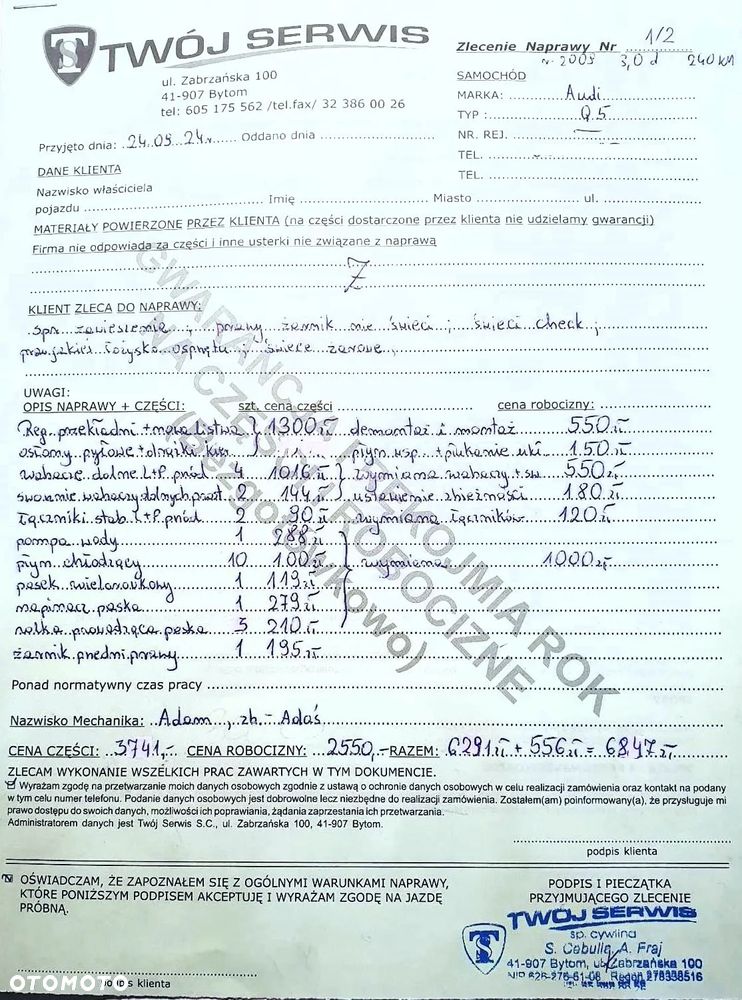 TS TWÓJ SERWIS
ul. Zabrzańska 100
41-907 Bytom
tel: 605 175 562 /tel.fax/ 32 386 00 26
Zlecenie Naprawy Nr 1/2
r. 2009 3,0 d 240 KM
SAMOCHÓD
MARKA: Audi
TYP : Q5
NR. REJ.
TEL.
TEL.
Przyjęto dnia: 24.09.24r. Oddano dnia
DANE KLIENTA
Nazwisko właściciela
pojazdu Imię Miasto ul.
MATERIAŁY POWIERZONE PRZEZ KLIENTA (na części dostarczone przez klienta nie udzielamy gwarancji)
Firma nie odpowiada za części i inne usterki nie związane z naprawą
Z
KLIENT ZLECA DO NAPRAWY:
spr. zawieszenia ; prawy żarnik nie świeci ; świeci check ;
łożysko osprzętu ; świece żarowe ,
UWAGI:
OPIS NAPRAWY + CZĘŚCI: szt. cena części cena robocizny:
Reg. przekładni + nowa listwa } 1300 zł demontaż i montaż 550 zł
osłony pyłowe + drążki kier. płyn wsp. + płukanie ukł. 150 zł
wahacze dolne L+P przód 4 1016 zł } wymiana wahaczy + sw. 550 zł
sworznie wahaczy dolnych przest. 2 144 zł ustawienie zbieżności 180 zł
łączniki stab. L+P przód 2 90 zł wymiana łączników 120 zł
pompa wody 1 288 zł
płyn chłodzący 10 100 zł } wymiana 1000 zł
pasek wielorowkowy 1 119 zł
napinacz paska 1 279 zł
rolka prowadząca paska 3 210 zł
żarnik przedni prawy 1 195 zł
GWARANCJA I RĘKOJMIA ROK
NA CZĘŚCI I ROBOCIZNĘ
(Bezgotówkowo)
Ponad normatywny czas pracy
Nazwisko Mechanika: Adam , zb. - Adaś
CENA CZĘŚCI: 3741,- CENA ROBOCIZNY: 2550,- RAZEM: 6291 zł + 556 zł = 6847 zł
ZLECAM WYKONANIE WSZELKICH PRAC ZAWARTYCH W TYM DOKUMENCIE.
Wyrażam zgodę na przetwarzanie moich danych osobowych zgodnie z ustawą o ochronie danych osobowych w celu realizacji zamówienia oraz kontakt na podany
w tym celu numer telefonu. Podanie danych osobowych jest dobrowolne lecz niezbędne do realizacji zamówienia. Zostałem(am) poinformowany(a), że przysługuje mi
prawo dostępu do swoich danych, możliwości ich poprawiania, żądania zaprzestania ich przetwarzania.
Administratorem danych jest Twój Serwis S.C., ul. Zabrzańska 100, 41-907 Bytom.
podpis klienta
OŚWIADCZAM, ŻE ZAPOZNAŁEM SIĘ Z OGÓLNYMI WARUNKAMI NAPRAWY,
KTÓRE PONIŻSZYM PODPISEM AKCEPTUJĘ I WYRAŻAM ZGODĘ NA JAZDĘ
PRÓBNĄ.
podpis klienta
PODPIS I PIECZĄTKA
PRZYJMUJĄCEGO ZLECENIE
TS TWÓJ SERWIS
sp. cywilna
S. Cebulla, A. Fraj
41-907 Bytom, ul. Zabrzańska 100
NIP 626-276-61-08 Regon 278338516
OTOMOTO